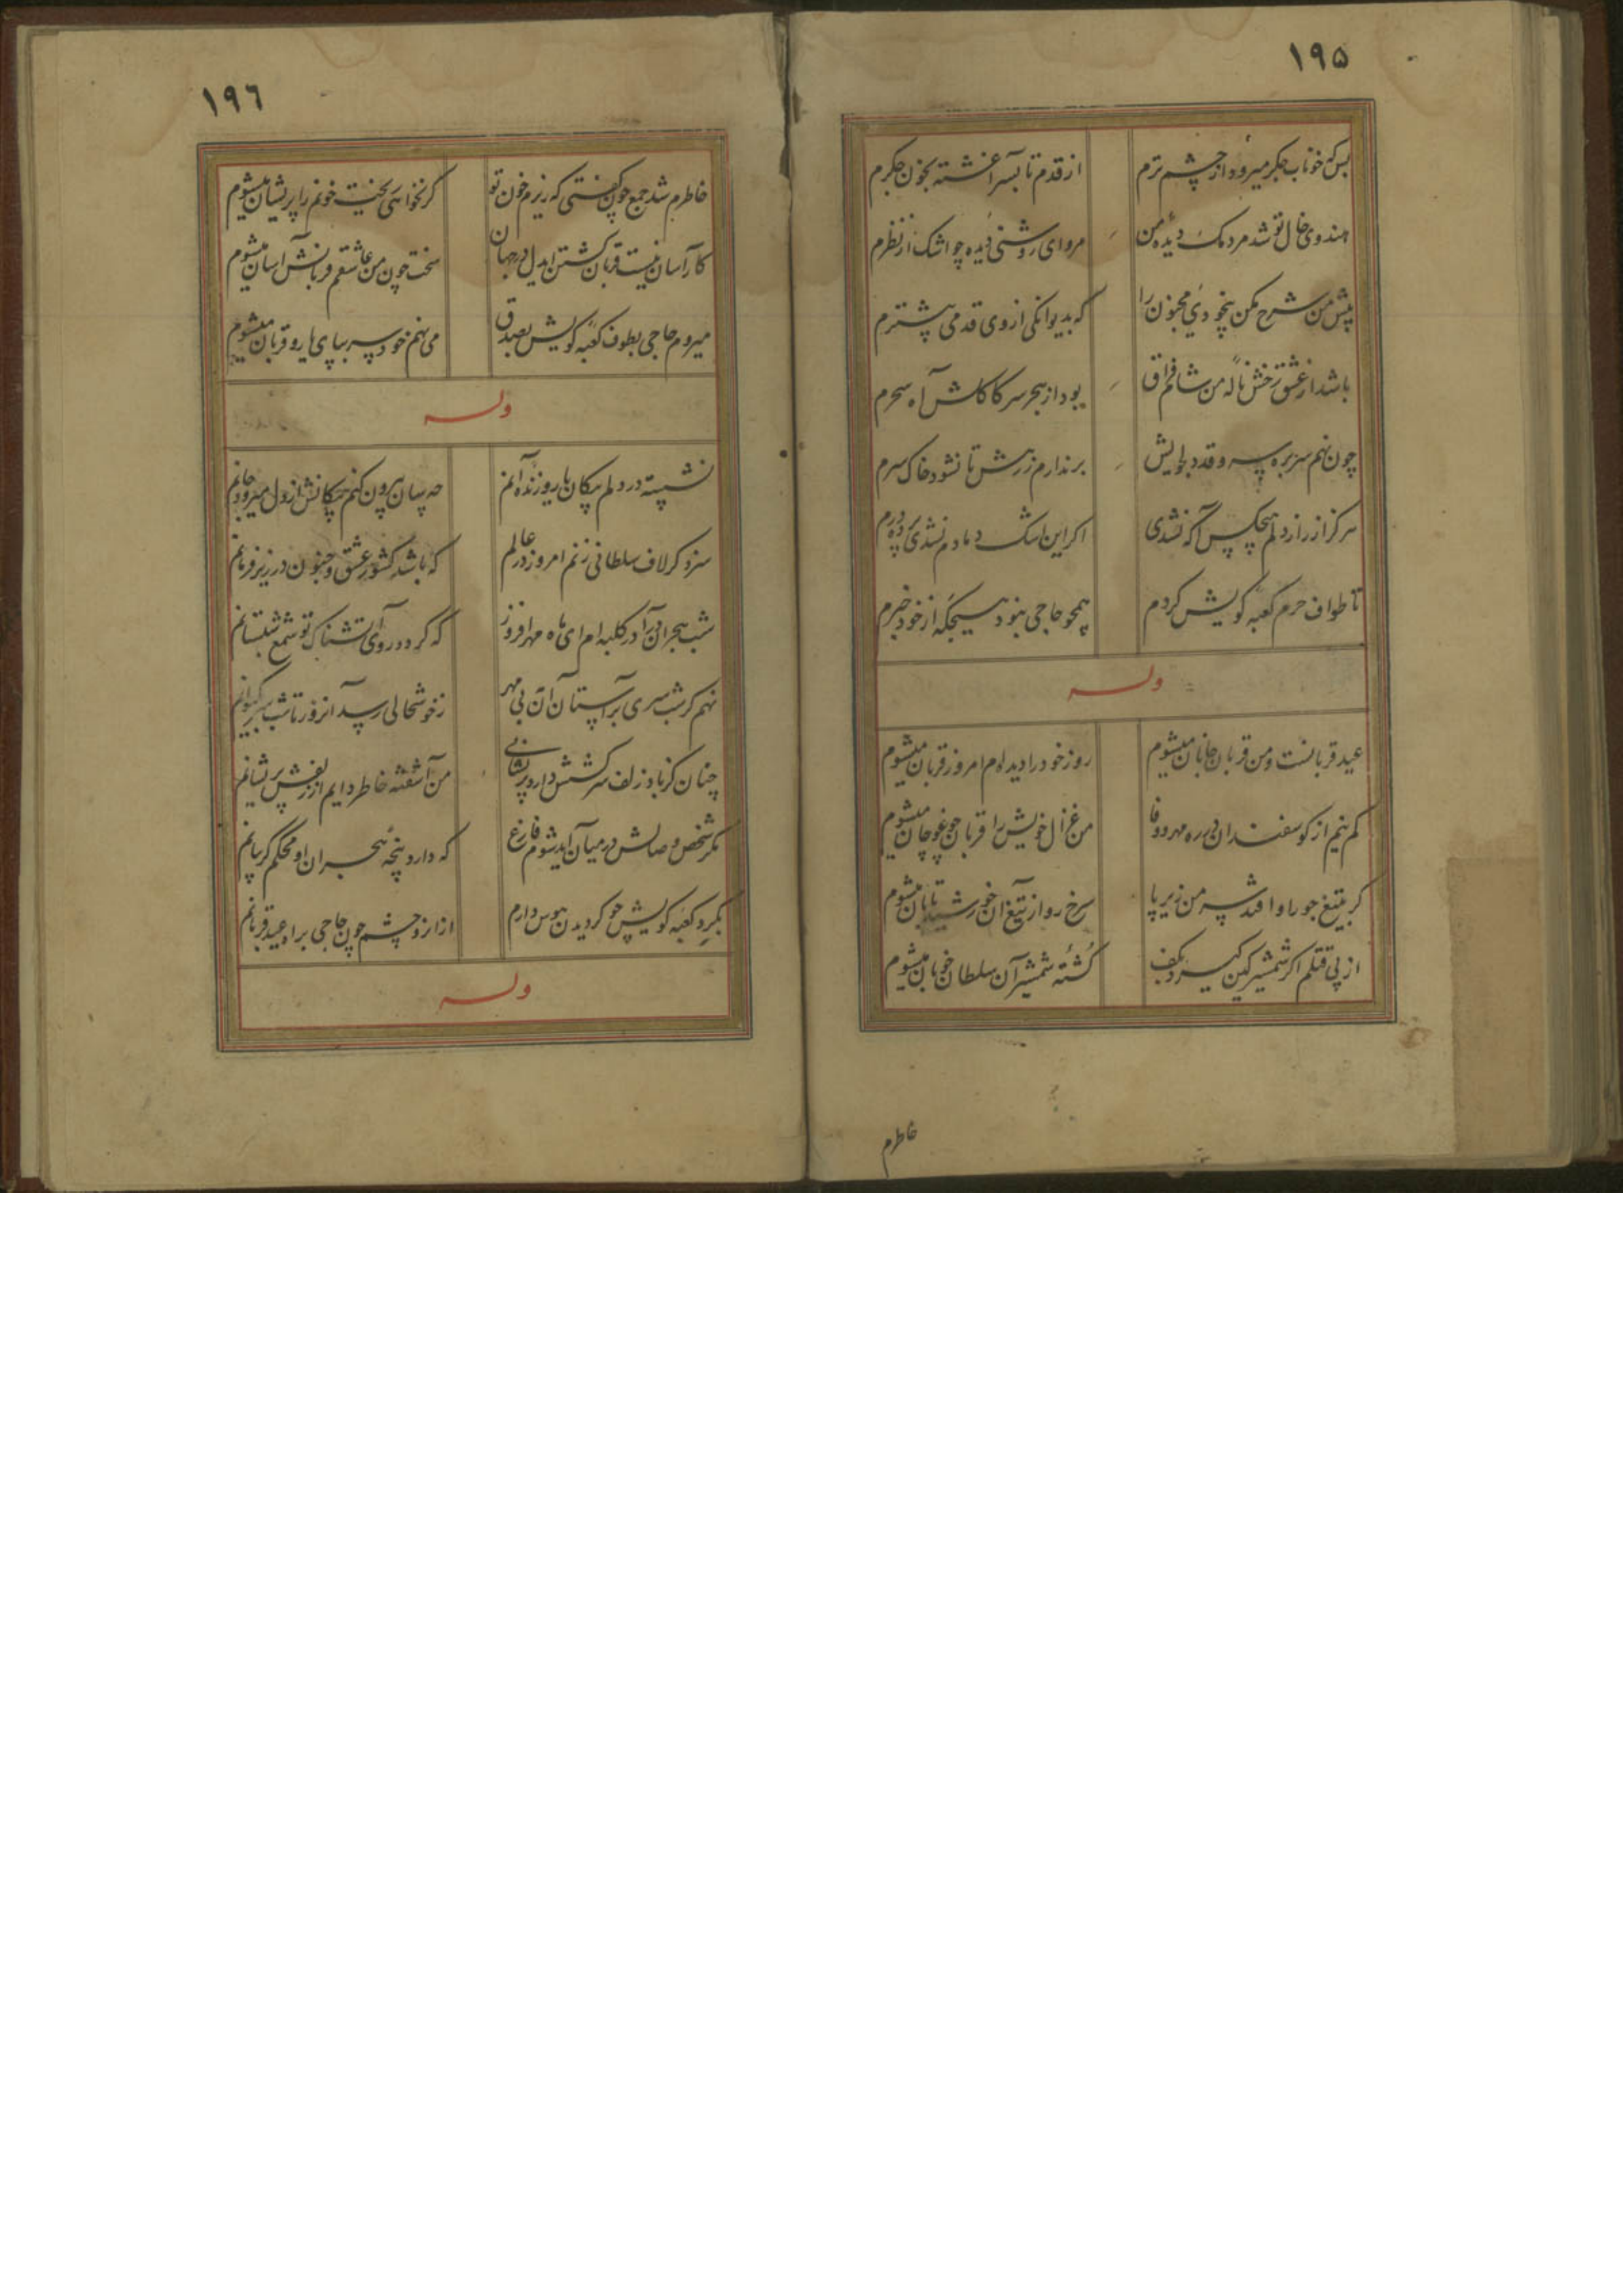 ۱۹۵
بس که خوناب جگر میرود از چشم ترم
از قدم تا بسر آغشته بخون جگرم
هندوی خال تو شد مردمک دیدهٔ من
مرو ای روشنی دیده چو اشک از نظرم
پیش من شرح مکن بیخودی مجنون را
که بدیوانکی از وی قدمی پیشترم
باشد از عشق رخش نالهٔ من شام فراق
بود از هجر سر کاکلش آه سحرم
چون نهم سر بره سرو قد دلجویش
برندارم ز رهش تا نشود خاک سرم
هرکز از راز دلم هیچکس آگه نشدی
اکر این اشک دمادم نشدی پرده درم
تا طواف حرم کعبه کویش کردم
همچو حاجی نبود هیچکه از خود خبرم
وله
عید قربانست و من قربان جانان میشوم
روز خود را دیده‌ام امروز قربان میشوم
کم نیم از کوسفندان در ره مهر و وفا
من غزال خویش را قربان چو میشوم
کر بتیغ جور او افتد سر من زیر پا
سرخ رو از تیغ آن خورشید تابان میشوم
از پی قتلم اکر شمشیر کین کیرد بکف
کشتهٔ شمشیر آن سلطان خوبان میشوم
خاطرم
۱۹٦
خاطرم شد جمع چون کفتی که ریزم خون تو
کر نخواهی ریخت خونم را پریشان میشوم
کار آسان نیست قربان کشتن ایدل در جهان
سخت چون من عاشقم قربانش آسان میشوم
میروم حاجی بطوف کعبه کویش بصدق
می نهم خود سر بپای یار و قربان میشوم
وله
نشسته در دلم پیکان یار و زنده آنم
چه سان بیرون کنم پیکانش از دل میرود جانم
سزد کر لاف سلطانی زنم امروز در عالم
که باشد کشور عشق و جنون در زیر فرمانم
شب هجران درآ در کلبه‌ام ای ماه مهرافروز
که کردد روی آتشناک تو شمع شبستانم
نهم کر شب سری بر آستان آن بی مهر
ز خوشحالی رسد آنروز تا شب سر بکیوانم
چنان کز باد زلف سرکشش دارد پریشانی
من آشفته خاطر دایم از زلفش پریشانم
مکر شخص وصالش در میان آید شوم فارغ
که دارد پنجهٔ هجران او محکم کریبانم
بکرد کعبه کویش چو کردیدن هوس دارم
از آنرو چشم چون حاجی براه عید قربانم
وله